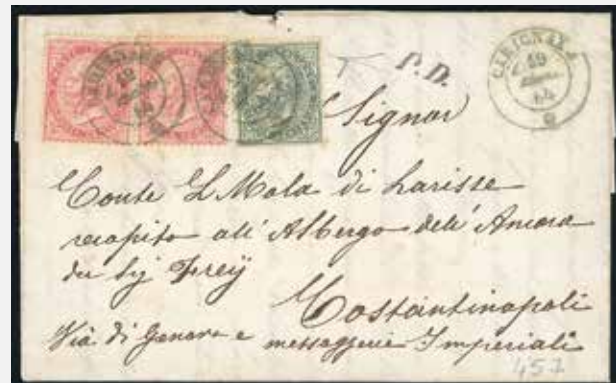 P.D.
CARIGNANO
19
64
Signor
Conte L Mola di Larisse
recapito all' Albergo dell' Ancora
Frey
Costantinopoli
Via di Genova e messaggerie Imperiali
457